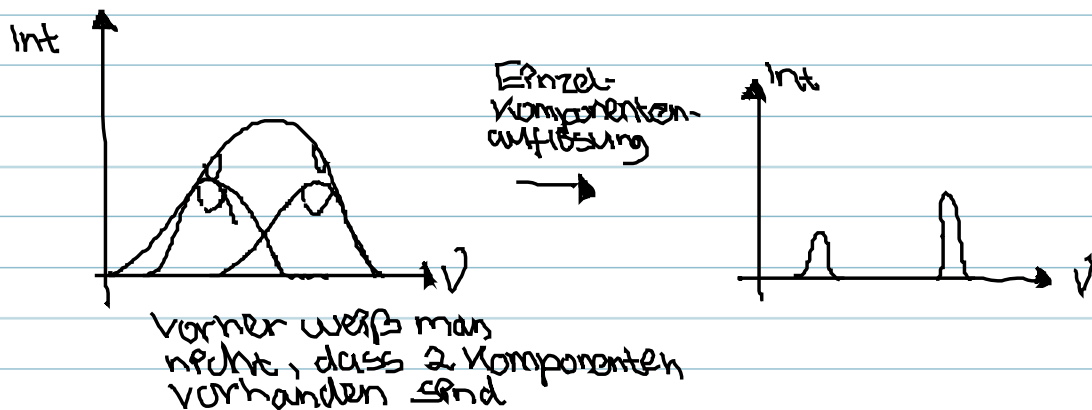 Int
V
Vorher weiß man
nicht, dass 2 Komponenten
vorhanden sind
Einzel-
Komponenten-
auflösung
Int
V